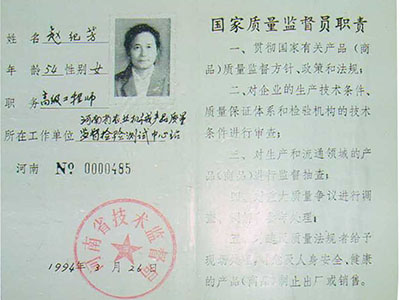 姓名 赵纪芳
年龄 54 性别 女
职务 高级工程师
河南省农业机械产品质量
所在工作单位 监督检验测试中心站
河南 № 0000485
河南省技术监督局
1994年3月26日
国家质量监督员职责
一、贯彻国家有关产品（商
品）质量监督方针、政策和法规；
二、对企业的生产技术条件、
质量保证体系和检验机构的技术
条件进行审查；
三、对生产和流通领域的产品
（商品）进行监督抽查；
四、对重大质量争议进行调
查、
五、对违反质量法规者给予
现场处 及人身安全、健康
的产品（商品）制止出厂或销售。